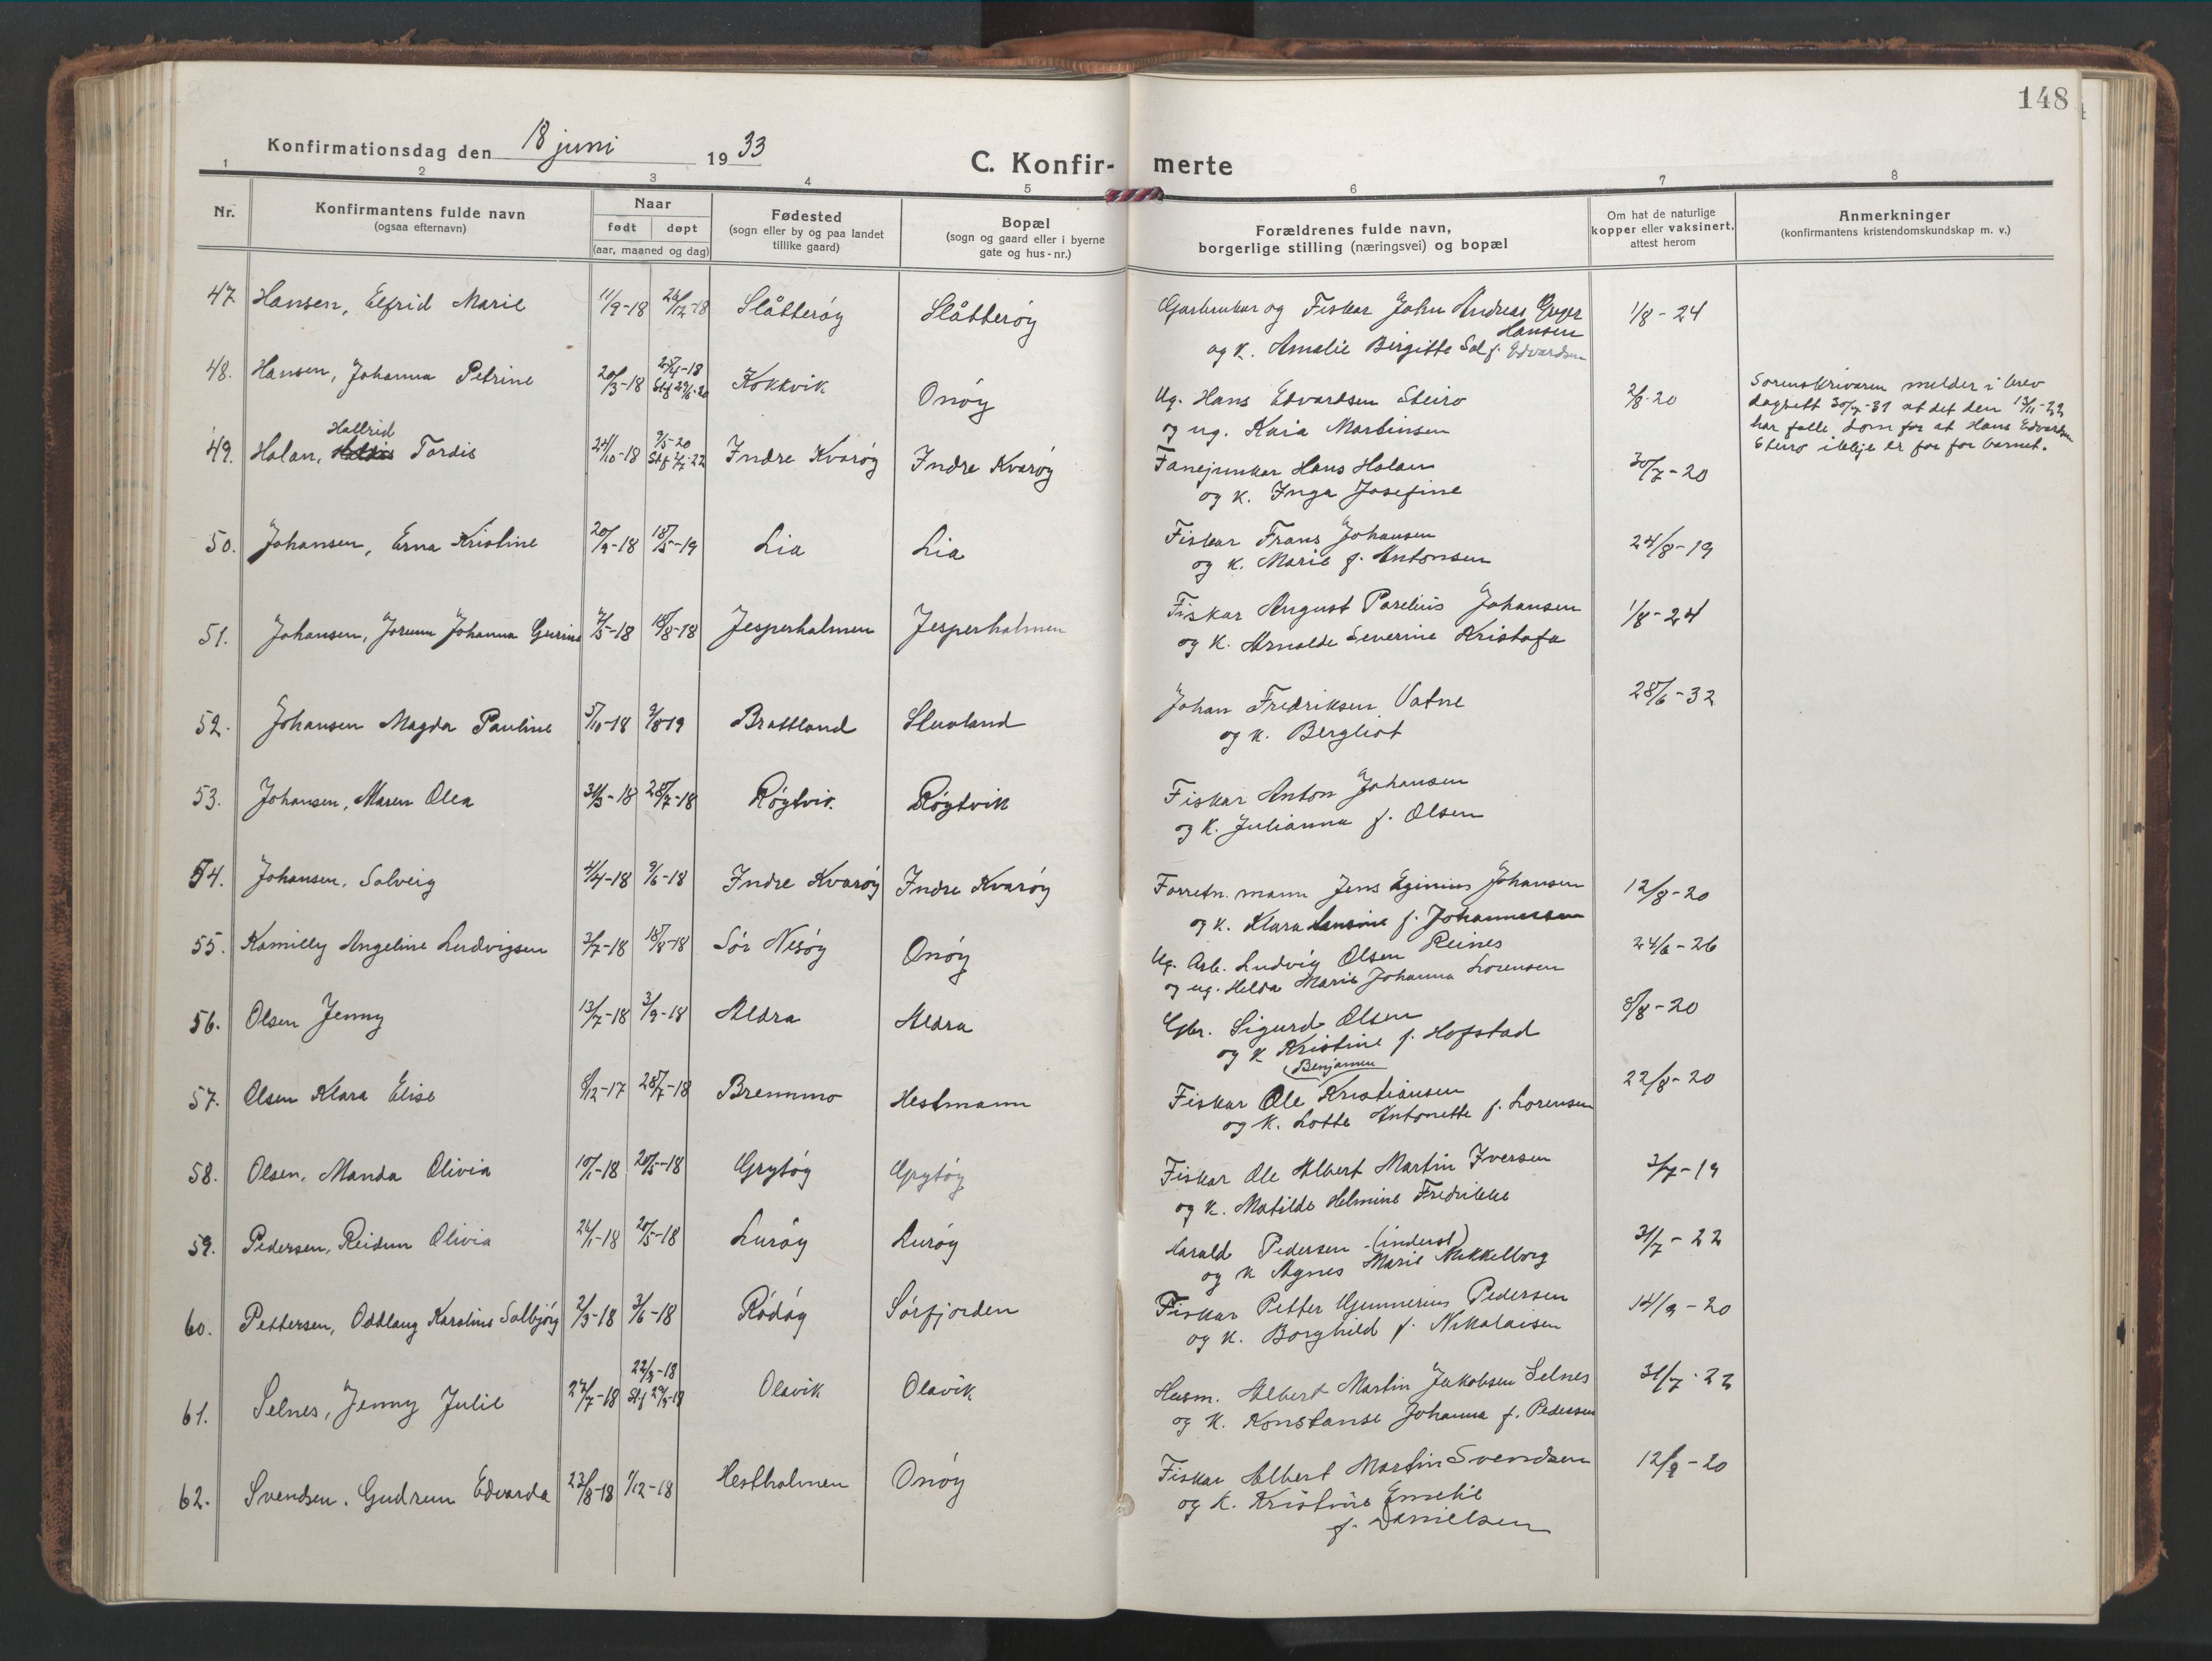 148
Konfirmationsdag den 18 juni 1933
C. Konfirmerte
1 2 3 4 5 6 7 8
Nr.
Konfirmantens fulde navn
(ogsaa efternavn)
Naar
født døpt
(aar, maaned og dag)
Fødested
(sogn eller by og paa landet
tillike gaard)
Bopæl
(sogn og gaard eller i byerne
gate og hus-nr.)
Forældrenes fulde navn,
borgerlige stilling (næringsvei) og bopæl
Om hat de naturlige
kopper eller vaksinert,
attest herom
Anmerkninger
(konfirmantens kristendomskundskap m. v.)
47. Hansen, Elfrid Marie 11/9-18 26/12-18 Slåtterøy Slåtterøy Garbrukar og Fiskar John Andreas Greger 1/8-24
Hansen
og k. Amalie Birgitte Sol f. Edvardsen
48. Hansen, Johanna Petrine 20/3-18 25/4-18 Kokkvik Onøy Ug. Hans Edvardsen Steiro 2/8-20 Sorenskrivaren melder i brev
dagsett 30/7-31 at det den 13/11-22
og ug. Kaia Martinsen har falle dom for at Hans Edvardsen
Steiro ikkje er far for barnet.
Hallrid
49. Holan, Tordis 24/10-18 9/5-20 Indre Kvarøy Indre Kvarøy Fanejunkar Hans Holan 30/7-20
og k. Inga Josefine
50. Johansen, Erna Kristine 20/9-18 18/5-19 Lia Lia Fiskar Frans Johansen 24/8-19
og k. Marie f. Antonsen
51. Johansen, Jorunn Johanna Gurine 7/5-18 18/8-18 Jesperholmen Jesperholmen Fiskar August Parelius Johansen 1/8-24
og k. Arnolde Severine Kristofa
52. Johansen Magda Pauline 5/10-18 9/8-19 Brattland Stuvland Johan Fredriksen Vatne 28/6-32
og k. Bergliot
53. Johansen, Maren Olea 31/3-18 28/7-18 Røytvik Røytvik Fiskar Anton Johansen
og k. Julianna f. Olsen
54. Johansen, Solveig 4/4-18 9/6-18 Indre Kvarøy Indre Kvarøy Forretn.mann Jens Eginius Johansen 12/8-20
og k. Klara Hansine f. Johannessen
55. Kamilly Angeline Ludvigsen 3/7-18 18/8-18 Sør Nesøy Onøy Ug. Arb. Ludvig Olsen Reines 24/6-26
og ug. Helda Marie Johanna Lorensen
56. Olsen Jenny 13/7-18 3/9-18 Aldra Aldra Gbr. Sigurd Olsen 8/8-20
og k Kristine f. Hofstad
Benjamin
57. Olsen Klara Elise 8/12-17 28/7-18 Bremmo Hestmann Fiskar Ole Kristiansen 22/8-20
og k. Lotte Antonette f. Lorensen
58. Olsen, Manda Olivia 10/1-18 20/5-18 Grytøy Grytøy Fiskar Ole Albert Martin Iversen 3/7-19
og k. Matilde Helmine Fredrikke
59. Pedersen, Reidun Olivia 26/1-18 20/5-18 Lurøy Lurøy Harald Pedersen (inderst) 31/7-22
og k Agnes Marie Mikkelborg
60. Pettersen, Oddlaug Karoline Solbjørg 2/3-18 3/6-18 Rødøy Sørfjorden Fiskar Petter Gunnerius Pedersen 14/9-20
og k. Borghild f. Nikolaisen
61. Selnes, Jenny Julie 27/7-18 22/9-18 Olavik Olavik Husm. Albert Martin Jakobsen Selnes 31/7-22
og k. Konstanse Johanna f. Pedersen
62. Svendsen, Gudrun Edvarda 23/8-18 1/12-18 Hestholmen Onøy Fiskar Albert Martin Svendsen 12/9-20
og k. Kristine Emelie
f. Danielsen